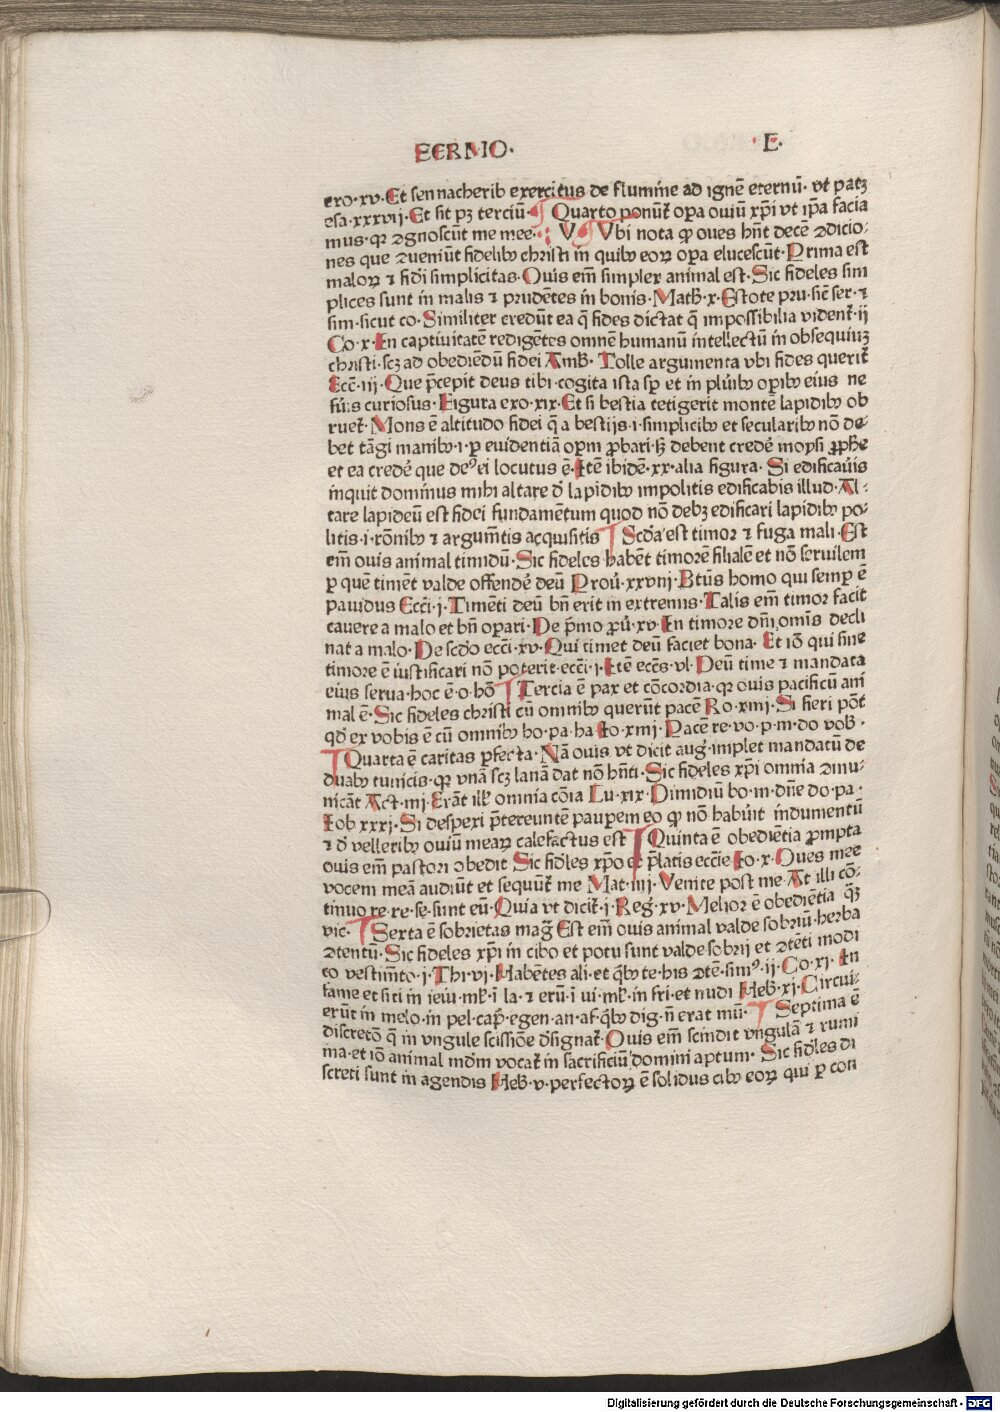 SERMO· ·E·
exo·xv·Et sennacherib exercitus de flumine ad ignē eternū· vt patꝫ
esa·xxxvij·Et sic pꝫ terciū·¶ Quarto ponūt᷒ oꝑa ouiū xp̄i vt ip̄a facia
mus·qꝛ ꝯgnoscūt me mee·: V ¶ Vbi nota ꝙ oues hn̄t decē ꝯdicio-
nes que ꝯueniūt fidelibꝰ christi in quibꝰ eoꝝ oꝑa elucescūt·Prima est
maloꝝ ⁊ fidei simplicitas·Ouis em̄ simplex animal est·Sic fideles sim
plices sunt in malis ⁊ prudētes in bonis·Math̄·x·Estote pru·sic̄ ser·⁊
sim·sicut co·Similiter credūt ea q̄ fides dictat q̄ impossibilia vident᷒·ij
Co·x·In captiuitatē redigētes omnē humanū intellectū in obsequiuꝫ
christi·scꝫ ad obediēdū fidei Amb̄·Tolle argumenta vbi fides querit᷒
Ecc̄·iij·Que p̄cepit deus tibi·cogita ista sp̄ et in plu̇ibꝰ oꝑibꝰ eius ne
fu̇is curiosus·Figura exo·xix·Et si bestia tetigerit montē lapidibꝰ ob
ruet᷒·Mons ē altitudo fidei q̄ a bestijs·i·simplicibꝰ et secularibꝰ nō de-
bet tāgi manibꝰ·i·ꝑ euidentiā oꝑm ꝓbari·sꝫ debent crede᷒ moysi ꝓph̄e
et ea crede᷒ que deꝰ ei locutus ē·Itē ibidē·xx·alia figura·Si edificau̇is
inquit dominus mihi altare d̄ lapidibꝰ impolitis edificabis illud·Al-
tare lapideū est fidei fundamētum quod nō debꝫ edificari lapidibꝰ po-
litis·i·rōnibꝰ ⁊ argum̄tis acquisitis ¶ Scd̄a est timor ⁊ fuga mali·Est
em̄ ouis animal timidū·Sic fideles habēt timorē filialē et nō seruilem
ꝑ quē timēt valde offende᷒ deū Prou᷒·xxviij·Btūs homo qui semꝑ ē
pauidus Ecc̄i·j·Timēti deū bn̄ erit in extremis·Talis em̄ timor facit
cauere a malo et bn̄ oꝑari·De p̄mo ꝓu᷒·xv·In timore dn̄i om̄is decli
nat a malo·De scd̄o ecc̄i·xv·Qui timet deū faciet bona·Et iō qui sine
timore ē iustificari nō poterit·ecc̄i·j·Itē ecc̄s·vl·Deū time ⁊ mandata
eius serua·hoc ē·o·hō ¶ Tercia ē pax et cōcordia·qꝛ ouis pacificū ani
mal ē·Sic fideles christi cū omnibꝰ querūt pacē Ro·xiiij·Si fieri pōt
qd̄ ex vobis ē cū omnibꝰ ho·pa·ha Io·xiiij·Pacē re·vo·p·m·do vob̄·
¶ Quarta ē caritas ꝑfecta·Nā ouis vt dicit aug᷒·implet mandatū de
duabꝰ tunicis·qꝛ vnā scꝫ lanā dat nō hn̄ti·Sic fideles xp̄i omnia ꝯmu-
nicāt Act·iiij·Erāt ill᷒ omnia cōia Lu·xix·Dimidiū bo·m·dn̄e do·pa·
Iob xxxj·Si despexi p̄tereuntē pauꝑem eo ꝙ nō habu̇it indumentū
⁊ d̄ velleribꝰ ouiū meaꝝ calefactus est ¶ Quinta ē obediētia ꝓmpta
ouis em̄ pastori obedit Sic fid̄les xp̄o et p̄latis ecc̄ie Io·x·Oues mee
vocem meā audiūt et sequūt᷒ me Mat·iiij·Venite post me·At illi cō-
tinuo re·re·se·sunt eū·Quia vt dicit᷒·j·Reg᷒·xv·Melior ē obediētia q̄ꝫ
vic·¶ Sexta ē sobrietas mag̃ Est em̄ ouis animal valde sobriū·herba
ꝯtentū·Sic fideles xp̄i in cibo et potu sunt valde sobrij et ꝯtēti modi
co vestim̄to·j·Thi·vj·Habētes ali·et q̄bꝰ te·his ꝯtē·simꝰ·ij·Co·xj·In
fame et siti in ieiu·ml᷒·ī la·⁊ eru᷒·ī vi·ml᷒·in fri·et nudi Heb̄·xj·Circui-
erūt in melo·in pel·cap᷒·egen·an·af·q̄bꝰ dig·n̄ erat mū·¶ Septima ē
discretō q̄ in vngule scissiōe d̄signat᷒·Ouis em̄ scindit vngulā ⁊ rumi
na·et iō animal mdm vocat᷒ in sacrificiū domini aptum·Sic fid̄les di
screti sunt in agendis Heb̄·v·perfectoꝝ ē solidus cibꝰ eoꝝ qui ꝑ con
Digitalisierung gefördert durch die Deutsche Forschungsgemeinschaft - DFG